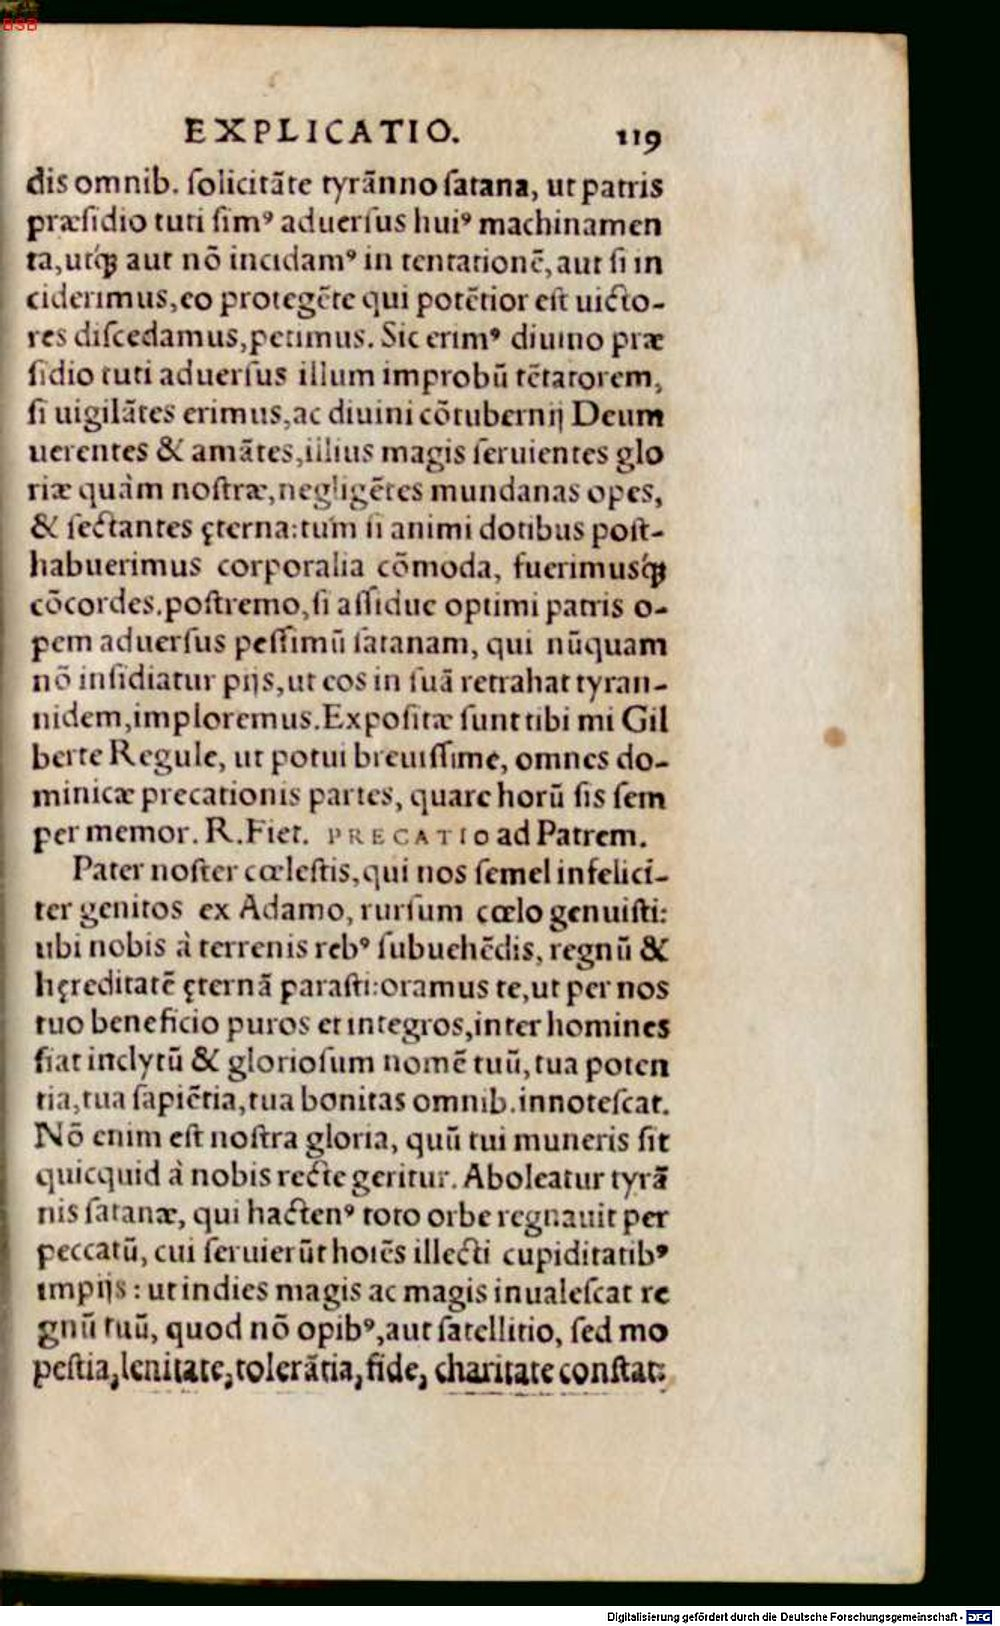 BSB
EXPLICATIO. 119
dis omnib. ſolicitāte tyrānno ſatana, ut patris
præſidio tuti ſimꝰ aduerſus huiꝰ machinamen
ta,utq́; aut nō incidamꝰ in tentationē, aut ſi in
ciderimus, eo protegēte qui potētior eſt uicto-
res diſcedamus, petimus. Sic erimꝰ diuino præ
ſidio tuti aduerſus illum improbū tētatorem,
ſi uigilātes erimus, ac diuini cōtubernij Deum
uerentes & amātes, illius magis ſeruientes glo
riæ quàm noſtræ, negligētes mundanas opes,
& ſectantes ęterna: tum ſi animi dotibus poſt-
habuerimus corporalia cōmoda, fuerimusq́;
cōcordes. poſtremo, ſi aſſidue optimi patris o-
pem aduerſus peſſimū ſatanam, qui nūquam
nō inſidiatur pijs, ut eos in ſuā retrahat tyran-
nidem, imploremus. Expoſitæ ſunt tibi mi Gil
berte Regule, ut potui breuiſſime, omnes do-
minicæ precationis partes, quare horū ſis ſem
per memor. R. Fiet. PRECATIO ad Patrem.
Pater noſter cœleſtis, qui nos ſemel infelici-
ter genitos ex Adamo, rurſum cœlo genuiſti:
ubi nobis à terrenis rebꝰ ſubuehēdis, regnū &
hęreditatē ęternā paraſti: oramus te, ut per nos
tuo beneficio puros et integros, inter homines
fiat inclytū & glorioſum nomē tuū, tua poten
tia, tua ſapiētia, tua bonitas omnib. innoteſcat.
Nō enim eſt noſtra gloria, quū tui muneris ſit
quicquid à nobis recte geritur. Aboleatur tyrā
nis ſatanæ, qui hactenꝰ toto orbe regnauit per
peccatū, cui ſeruierūt hoīēs illecti cupiditatibꝰ
impijs: ut indies magis ac magis inualeſcat re
gnū tuū, quod nō opibꝰ, aut ſatellitio, ſed mo
peſtia, lenitate, tolerātia, fide, charitate conſtat:
Digitalisierung gefördert durch die Deutsche Forschungsgemeinschaft - DFG